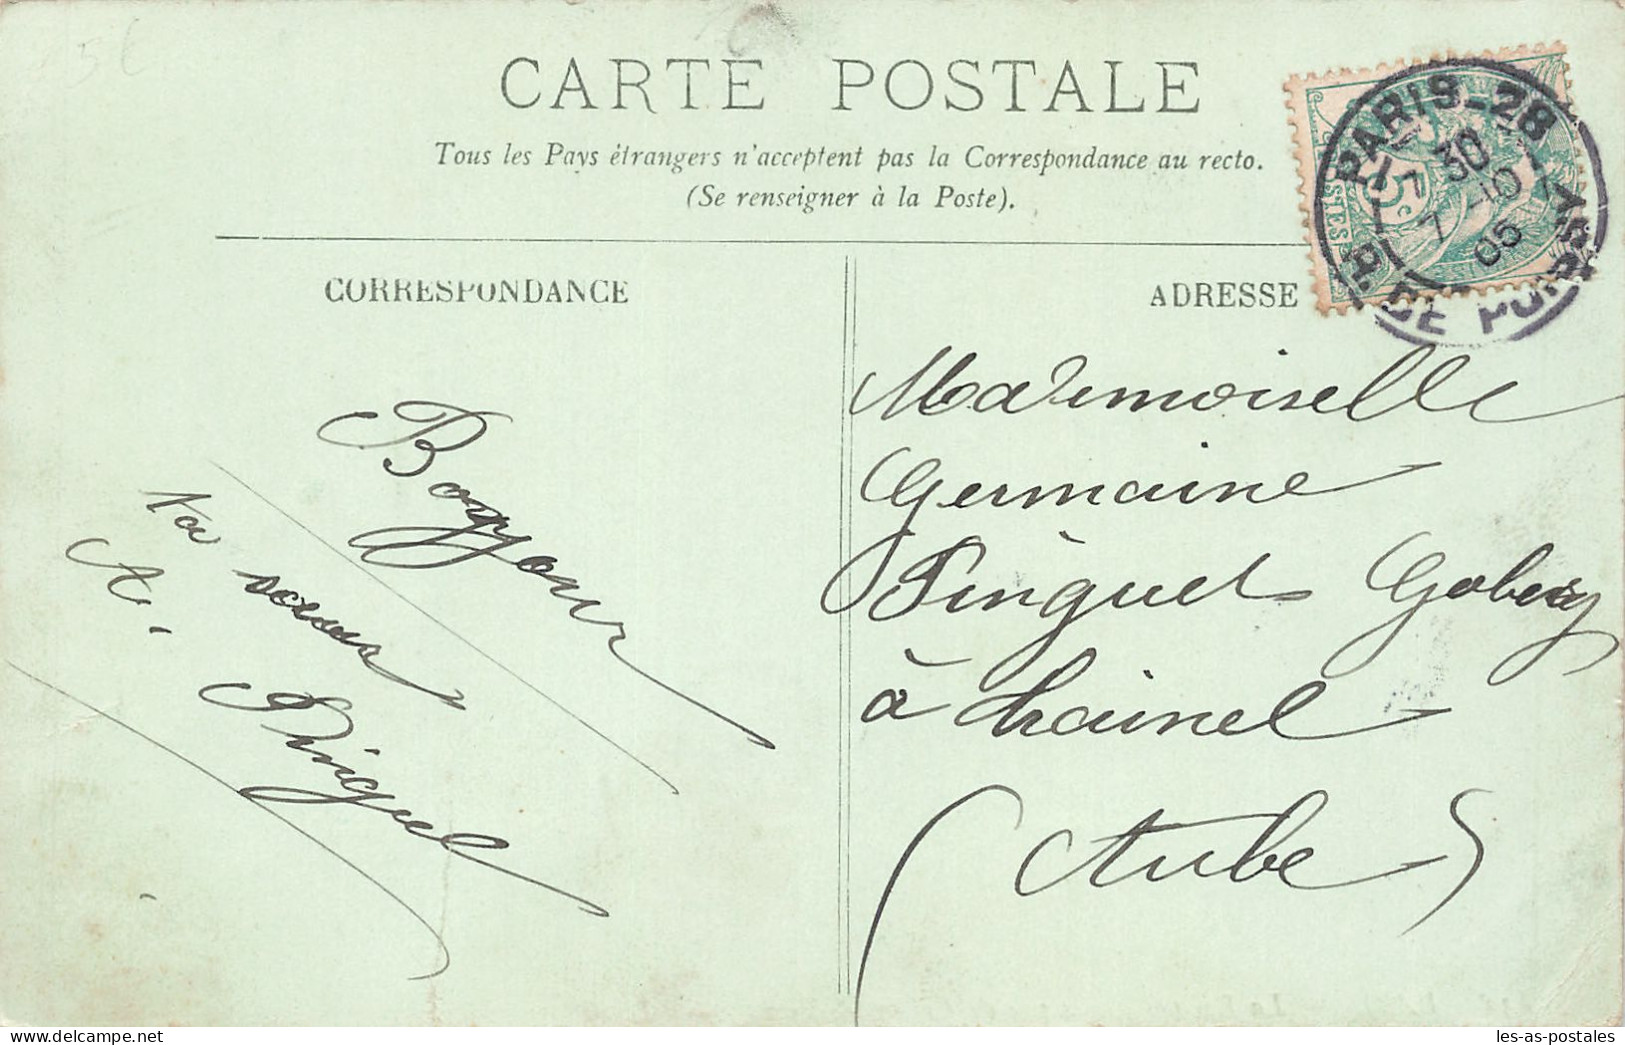 5€
CARTE POSTALE
Tous les Pays étrangers n'acceptent pas la Correspondance au recto.
(Se renseigner à la Poste).
PARIS-28
7 30
7 -10
05
R. DE POISSY
5c
POSTES
CORRESPONDANCE
ADRESSE
Bonjour
Ta sœur
A. Pinguet
Mademoiselle
Germaine
Pinguet
à Arcinel
(Aube)
les-as-postales